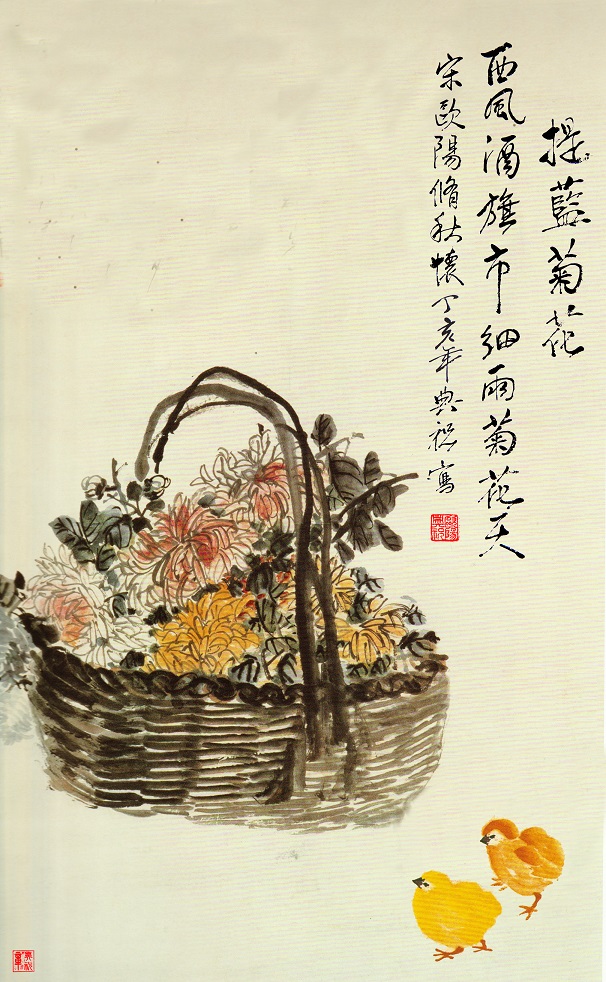 提藍菊花
西風酒旗市細雨菊花天
宋歐陽脩秋懷丁亥年典裕寫